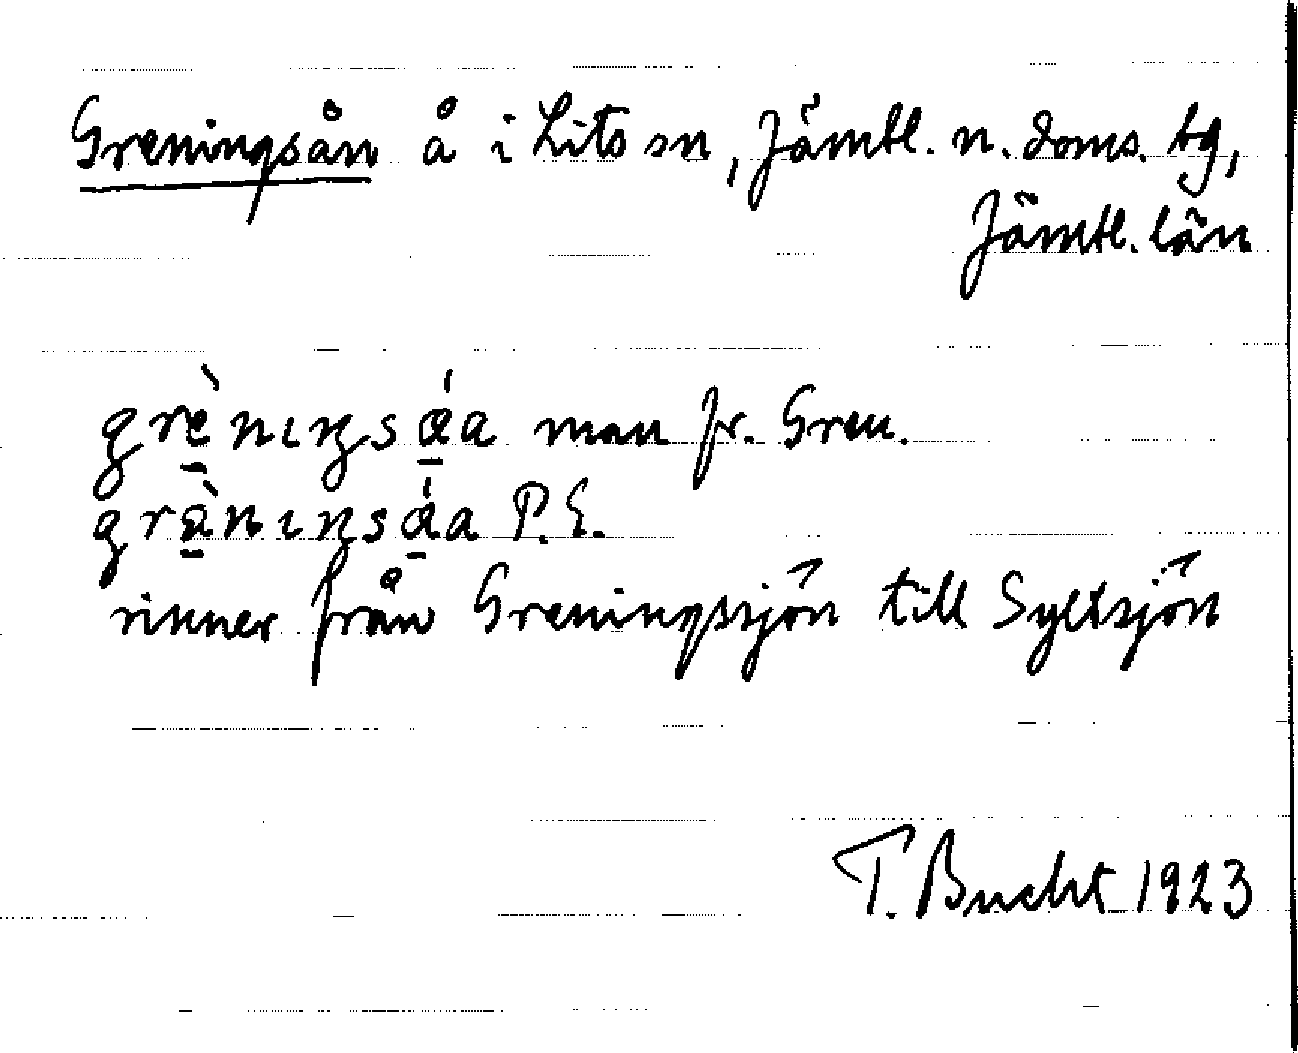 Greningsån å i Lits sn, Jämtl. n. doms. tg,
Jämtl. län
grè̱nıŋsá̱a man fr. Gren.
grà̱nıŋsá̱a P.E.
rinner från Greningssjön till Syltsjön
T. Bucht 1923